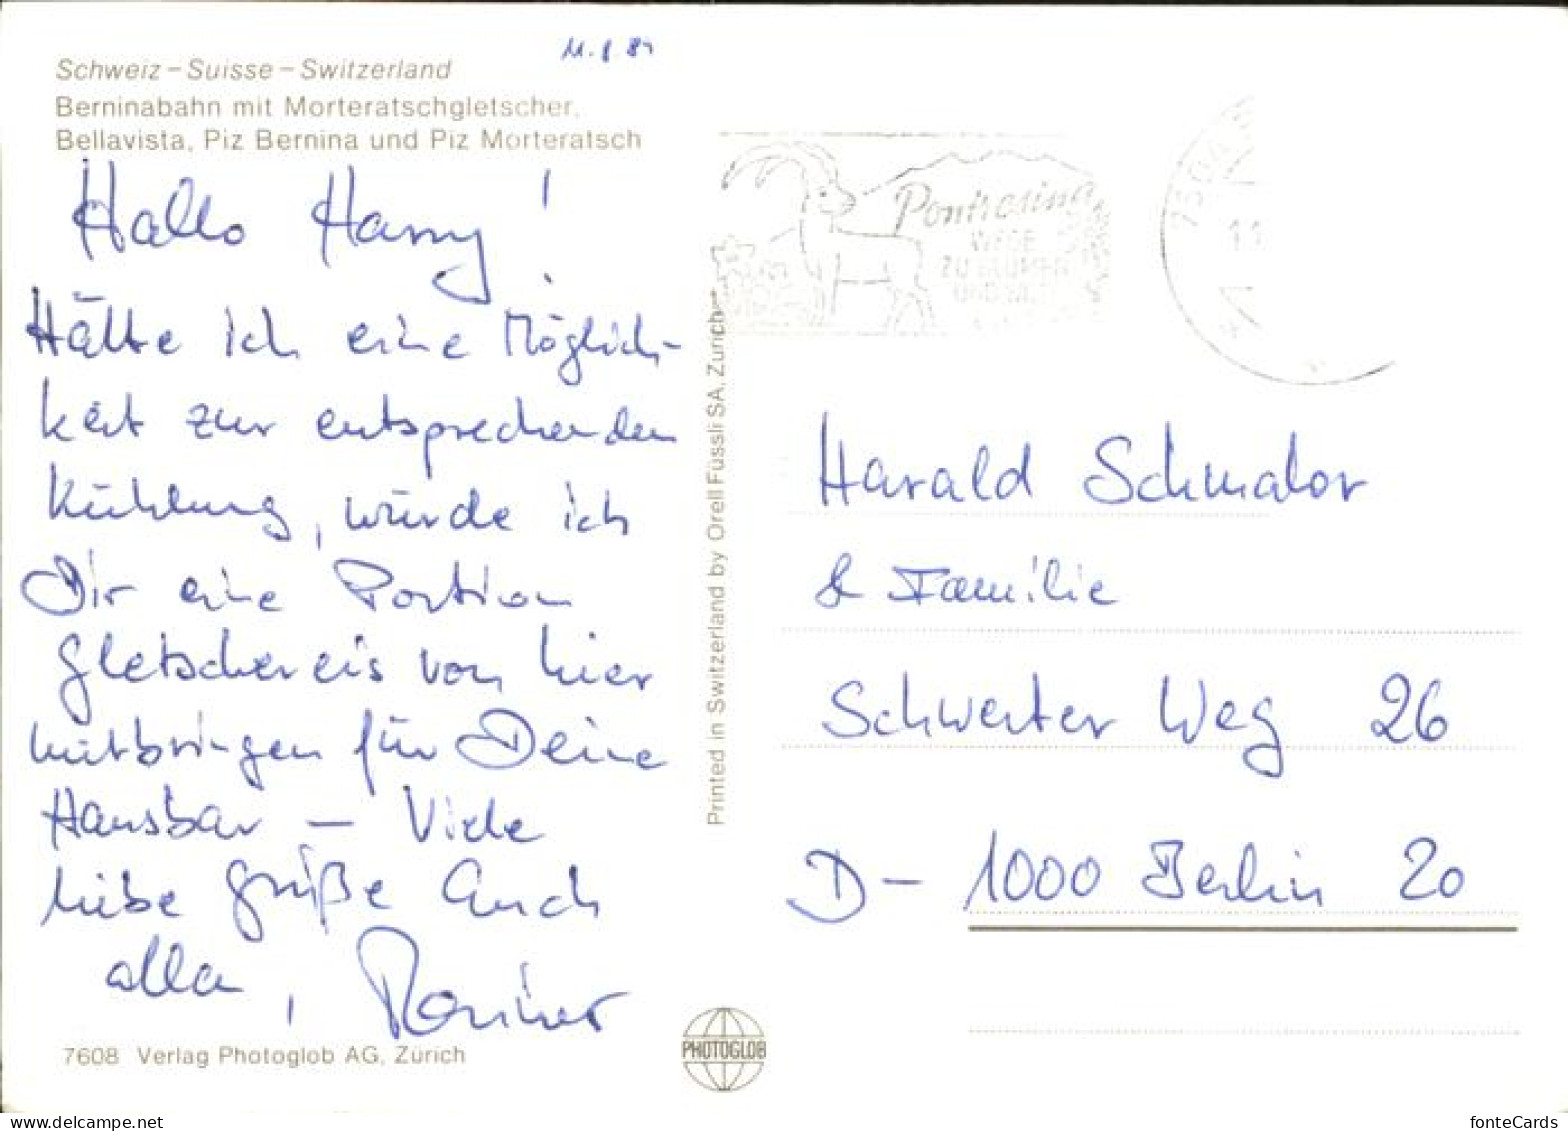 Schweiz – Suisse – Switzerland
11.8.81
Berninabahn mit Morteratschgletscher,
Bellavista, Piz Bernina und Piz Morteratsch
Hallo Harry!
Hätte ich eine Möglich-
keit zur entsprechenden
Kühlung, würde ich
Dir eine Portion
Gletschereis von hier
mitbringen für Deine
Hausbar – Viele
liebe Grüße Euch
allen,
7608 Verlag Photoglob AG, Zürich
Printed in Switzerland by Orell Füssli SA, Zürich
PHOTOGLOB
Pontresina
WEGE
ZU BLUMEN
UND
11
Harald Schmalor
& Familie
Schwerter Weg 26
D – 1000 Berlin 20
fonteCards
www.delcampe.net